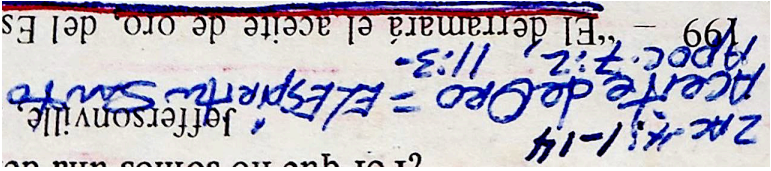 Zac 4:1-14
Jeffersonville,
Aceite de Oro = El Espíritu Santo
Apoc. 7:2, 11:3-
199 – “El derramará el aceite de oro, del Es